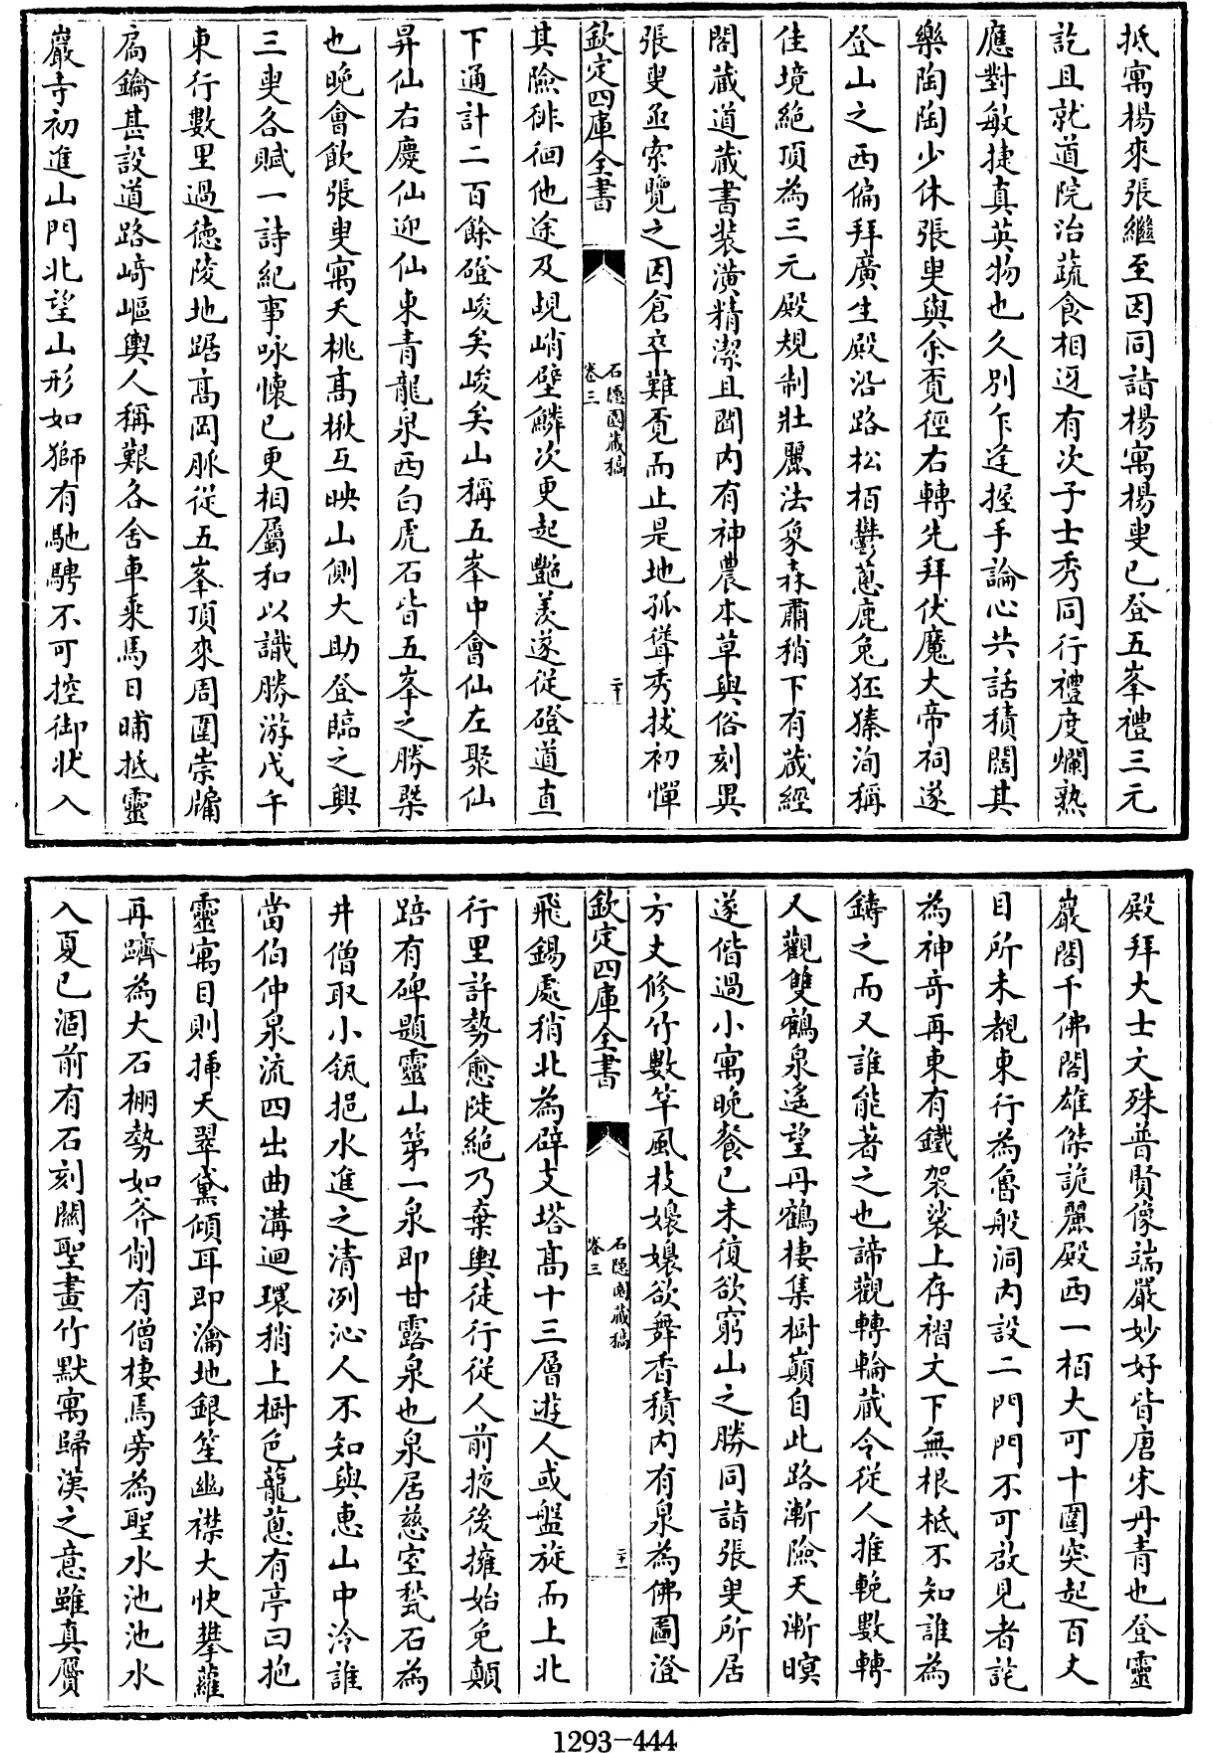 抵寓楊來張繼至因同詣楊寓楊叟已登五峯禮三元
訖且就道院治蔬食相迓有次子士秀同行禮度爛熟
應對敏捷真英物也久別乍逢握手論心共話積闊其
樂陶陶少休張叟與余覔徑右轉先拜伏魔大帝祠遂
登山之西偏拜廣生殿沿路松栢鬱蔥鹿兔狉獉洵稱
佳境絶頂為三元殿規制壯麗法象森肅稍下有藏經
閣藏道藏書裝潢精潔且閣内有神農本草與俗刻異
張叟亟索覽之因倉卒難覔而止是地孤聳秀拔初憚
欽定四庫全書
石隱園藏稿
卷三
二十
其險徘徊他途及覘峭壁鱗次更起艷羡遂從磴道直
下通計二百餘磴峻矣峻矣山稱五峯中會仙左聚仙
昇仙右慶仙迎仙東青龍泉西白虎石皆五峯之勝槩
也晚會飲張叟寓夭桃髙楸互映山側大助登臨之興
三叟各賦一詩紀事咏懷已更相屬和以識勝游戊午
東行數里過徳陵地踞髙岡脈從五峯頂來周圍崇牖
扃鑰甚設道路﨑嶇輿人稱艱各舍車乘馬日晡抵靈
巖寺初進山門北望山形如獅有馳騁不可控御狀入
殿拜大士文殊普賢像端嚴妙好皆唐宋丹青也登靈
巖閣千佛閣雄傑詭麗殿西一栢大可十圍突起百丈
目所未覩東行為魯般洞内設二門門不可啟見者詫
為神竒再東有鐵袈裟上存褶文下無根柢不知誰為
鑄之而又誰能著之也諦觀轉輪藏令從人推輓數轉
又觀雙鶴泉遙望丹鶴棲集樹巔自此路漸險天漸暝
遂偕過小寓晚餐已未復欲窮山之勝同詣張叟所居
方丈修竹數竿風枝嬝嬝欲舞香積内有泉為佛圖澄
欽定四庫全書
石隱園藏稿
卷三
二十一
飛錫處稍北為辟支塔髙十三層遊人或盤旋而上北
行里許勢愈陡絶乃棄輿徒行從人前掖後擁始免顛
踣有碑題靈山第一泉即甘露泉也泉居慈室甃石為
井僧取小瓴挹水進之清冽沁人不知與惠山中泠誰
當伯仲泉流四出曲溝迴環稍上樹色蘢蔥有亭曰抱
靈寓目則插天翠黛傾耳即瀹地銀笙幽襟大快攀蘿
再躋為大石棚勢如斧削有僧棲焉旁為聖水池池水
入夏已涸前有石刻闗聖畫竹默寓歸漢之意雖真贋
1293-444